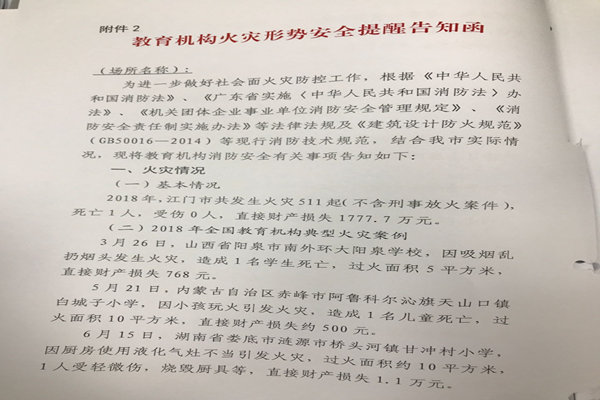 附件2
教育机构火灾形势安全提醒告知函
(场所名称):
为进一步做好社会面火灾防控工作，根据《中华人民共
和国消防法》、《广东省实施〈中华人民共和国消防法〉办
法》、《机关团体企业事业单位消防安全管理规定》、《消
防安全责任制实施办法》等法律法规及《建筑设计防火规范》
(GB50016—2014)等现行消防技术规范，结合我市实际情
况，现将教育机构消防安全有关事项告知如下：
一、火灾情况
(一)基本情况
2018年，江门市共发生火灾511起(不含刑事放火案件)，
死亡1人，受伤0人，直接财产损失1777.7万元。
(二)2018年全国教育机构典型火灾案例
3月26日，山西省阳泉市南外环大阳泉学校，因吸烟乱
扔烟头发生火灾，造成1名学生死亡，过火面积5平方米，
直接财产损失768元。
5月21日，内蒙古自治区赤峰市阿鲁科尔沁旗天山口镇
白城子小学，因小孩玩火引发火灾，造成1名儿童死亡，过
火面积10平方米，直接财产损失约500元。
6月15日，湖南省娄底市涟源市桥头河镇甘冲村小学，
因厨房使用液化气灶不当引发火灾，过火面积约10平方米，
1人受轻微伤，烧毁厨具等，直接财产损失1.1万元。